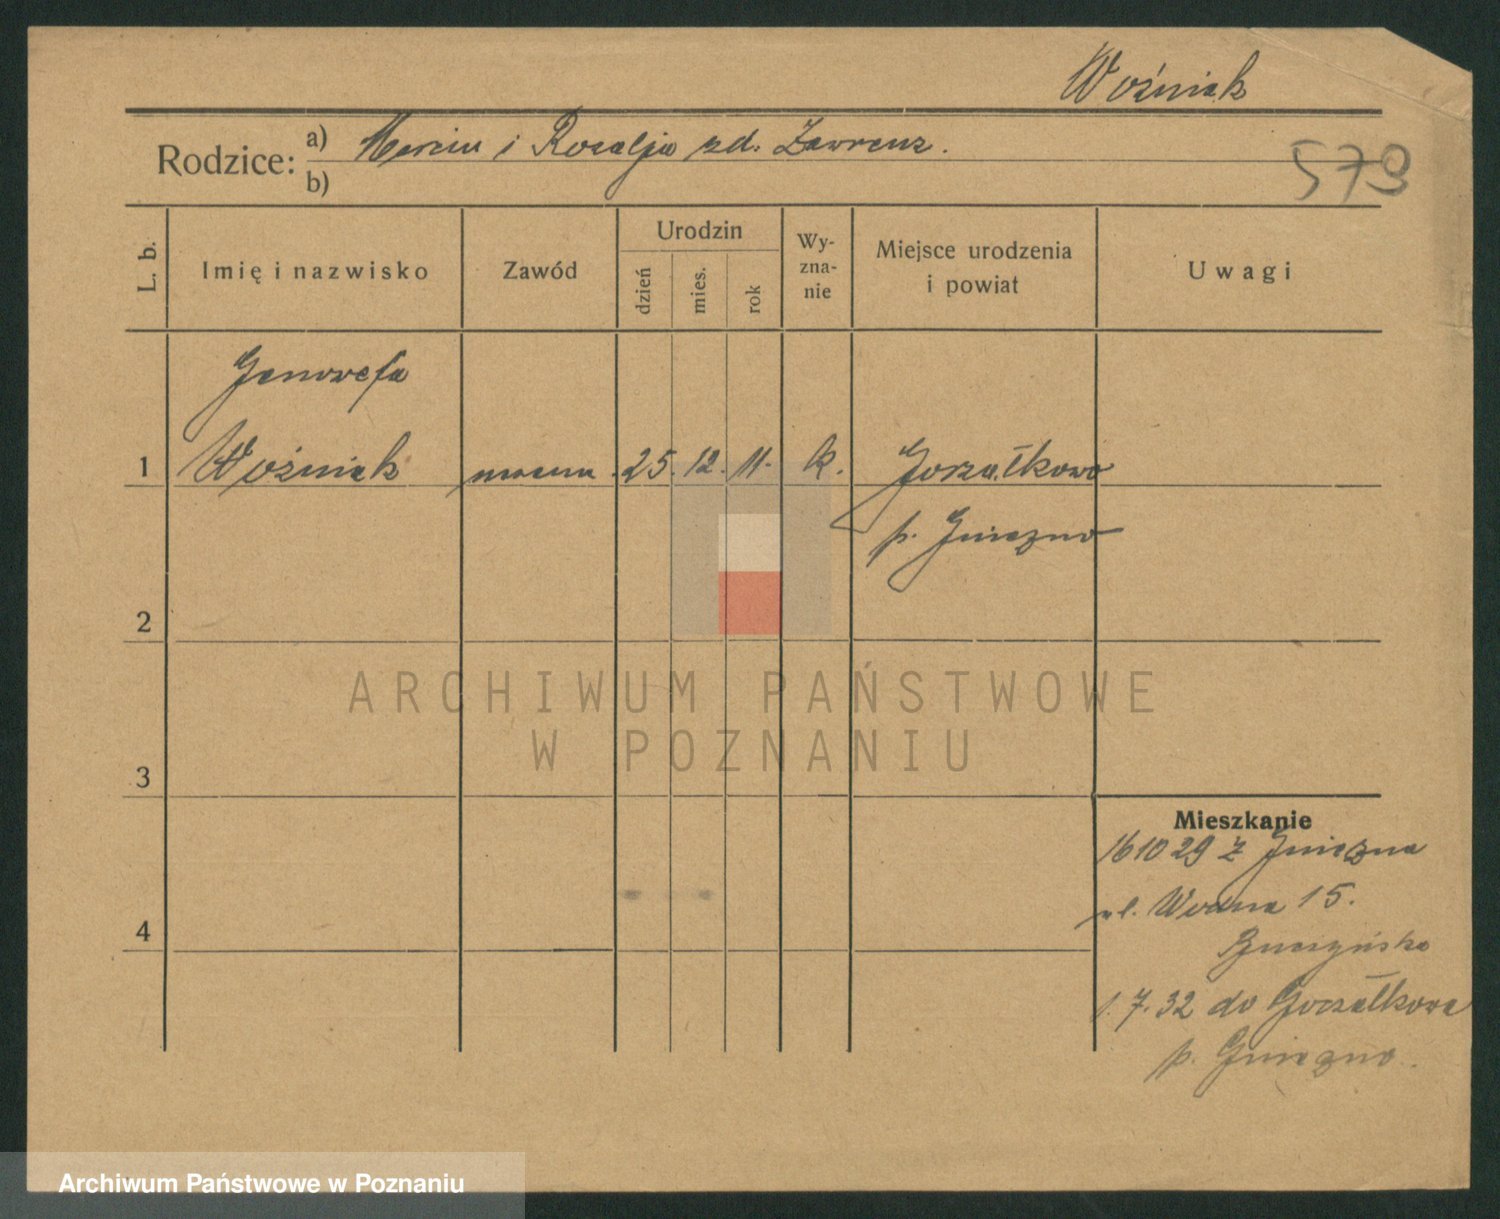 Woźniak
Rodzice: a) Marcin i Rozalja zd. Lawrenz.
b)
579
L. b.
Imię i nazwisko
Zawód
Urodzin
dzień
mies.
rok
Wy-
zna-
nie
Miejsce urodzenia
i powiat
Uwagi
Genowefa
1 Woźniak 25. 12. 11. k. Gorzałkowo
p. Gniezno
2
ARCHIWUM PAŃSTWOWE
W POZNANIU
3
Mieszkanie
16 10 29 z Gniezna
ul. Wodna 15.
4
1. 7. 32 do Gorzałkowa
p. Gniezno.
Archiwum Państwowe w Poznaniu